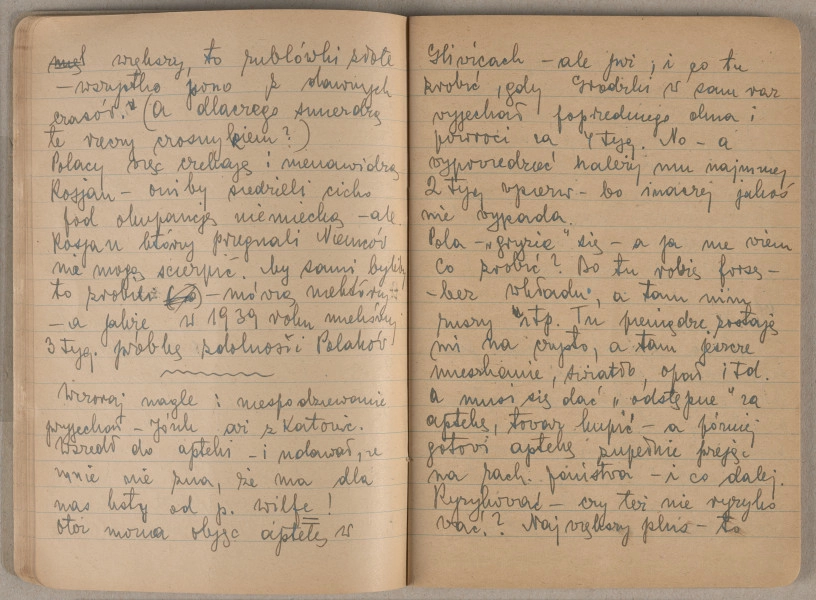 większy, to rublówki złote
– wszystko jono z dawnych
czasów." (A dlaczego śmierdzą
te rzeczy czosnykiem?)
Polacy więc czekają i nienawidzą
Rosjan – oni by siedzieli cicho
pod okupancją niemiecką – ale
Rosjan którzy przegnali Niemców
nie mogą ścierpić. "My sami byliby
to zrobili" – mówią niektórzy
– a jakże w 1939 roku mieliśmy
3 tyg. próbkę zdolności Polaków
Wczoraj nagle i niespodziewanie
przyjechał – Józek aż z Katowic.
Wszedł do apteki – i udawał, że
mnie nie zna, że ma dla
nas listy od p. Wilfe!
Otóż można objąć aptekę w
Gliwicach – ale już; i co tu
zrobić, gdy Grodzki w sam raz
wyjechał poprzedniego dnia i
powróci za 4 tyg. No – a
wypowiedzieć należy mu najmniej
2 tyg wpierw – bo inaczej jakoś
nie wypada.
Pola – "gryzie" się – a ja nie wiem
co zrobić? Bo tu robię forsę –
– bez wkładu, a tam
itp. Tu pieniądze zostają
mi na czysto, a tam jeszcze
mieszkanie, światło, opał itd.
a musi się dać "odstępne" za
aptekę, towar kupić – a później
gotowi aptekę zupełnie przejąć
na rach. państwa – i co dalej.
Ryzykować – czy też nie ryzyko
wać? Największy plus – to